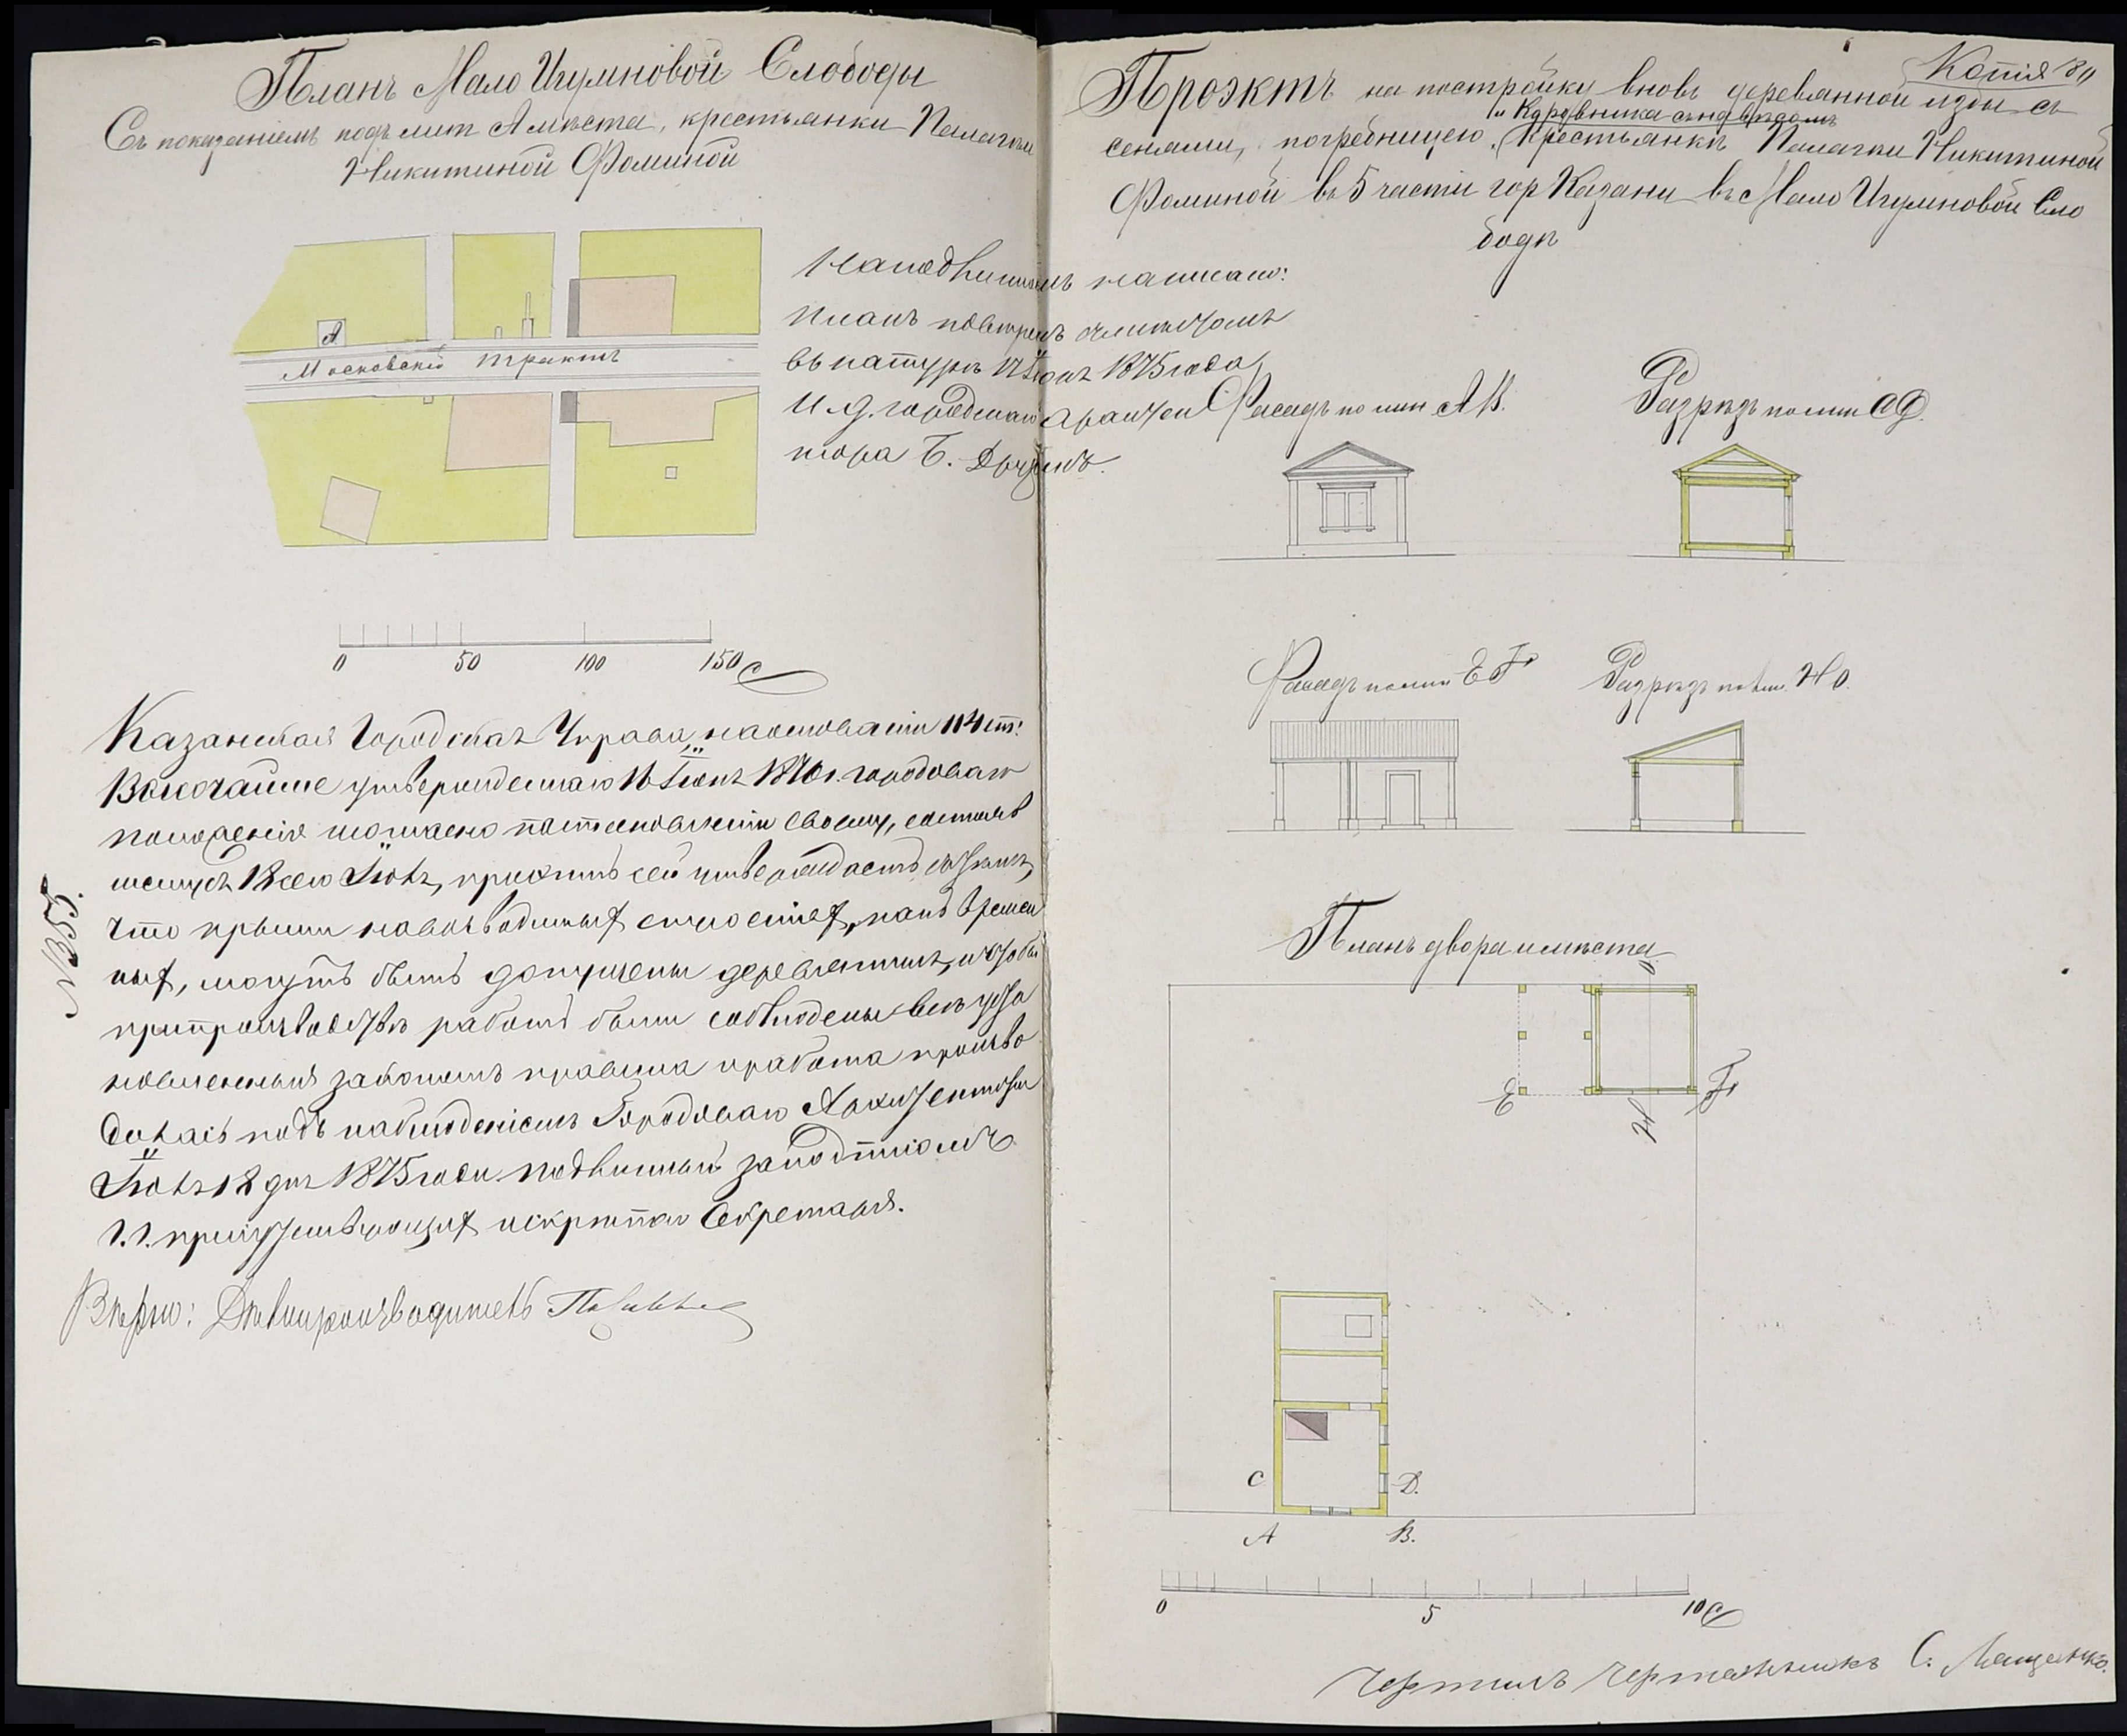 Планъ Мало Игумновой Слободы
Съ показаніемъ подъ лит А мѣста, крестьянки Пелагеи
Никитиной Фоминой
А
Московскій трактъ
0 50 100 150 с
На подлинномъ написано:
планъ повѣренъ
въ натурѣ Іюня 1875 года
И. д. городскаго
тора Б.
Казанская Городская Управа, на основаніи 114 ст:
Высочайше утвержденнаго 16 Іюня 1870 г. городоваго
положенія согласно постановленію своему, состояв
шемуся 18 сего Іюня, проэктъ сей утверждаетъ съ тѣмъ,
что крыши на возводимыхъ строеніяхъ, какъ времен
ныхъ, могутъ быть допущены деревянныя, и чтобы
при производствѣ работъ были соблюдены всѣ уста
новленныя закономъ правила и работа произво
дилась подъ наблюденіемъ Городоваго Архитектора
Іюня 18 дня 1875 года подлинный за подписомъ
Г.Г. присутствующихъ и скрѣпою Секретаря.
Вѣрно: Дѣлопроизводитель
№ 355.
Копія 80
Проэктъ на постройку вновь деревянной избы съ
и коровника сѣноваломъ
сенями, погребницею, крестьянкѣ Пелагеи Никитиной
Фоминой въ 5 части гор Казани въ Мало Игумновой Сло
бодѣ
Фасадъ по лин АВ.
Разрѣзъ по лин СD.
Фасадъ по лин EF
Разрѣзъ по лин. НО.
Планъ двора и мѣста
О
E
F
Н
C
D.
А
В.
0 5 10 С
Чертилъ чертежникъ С. Мащенко.